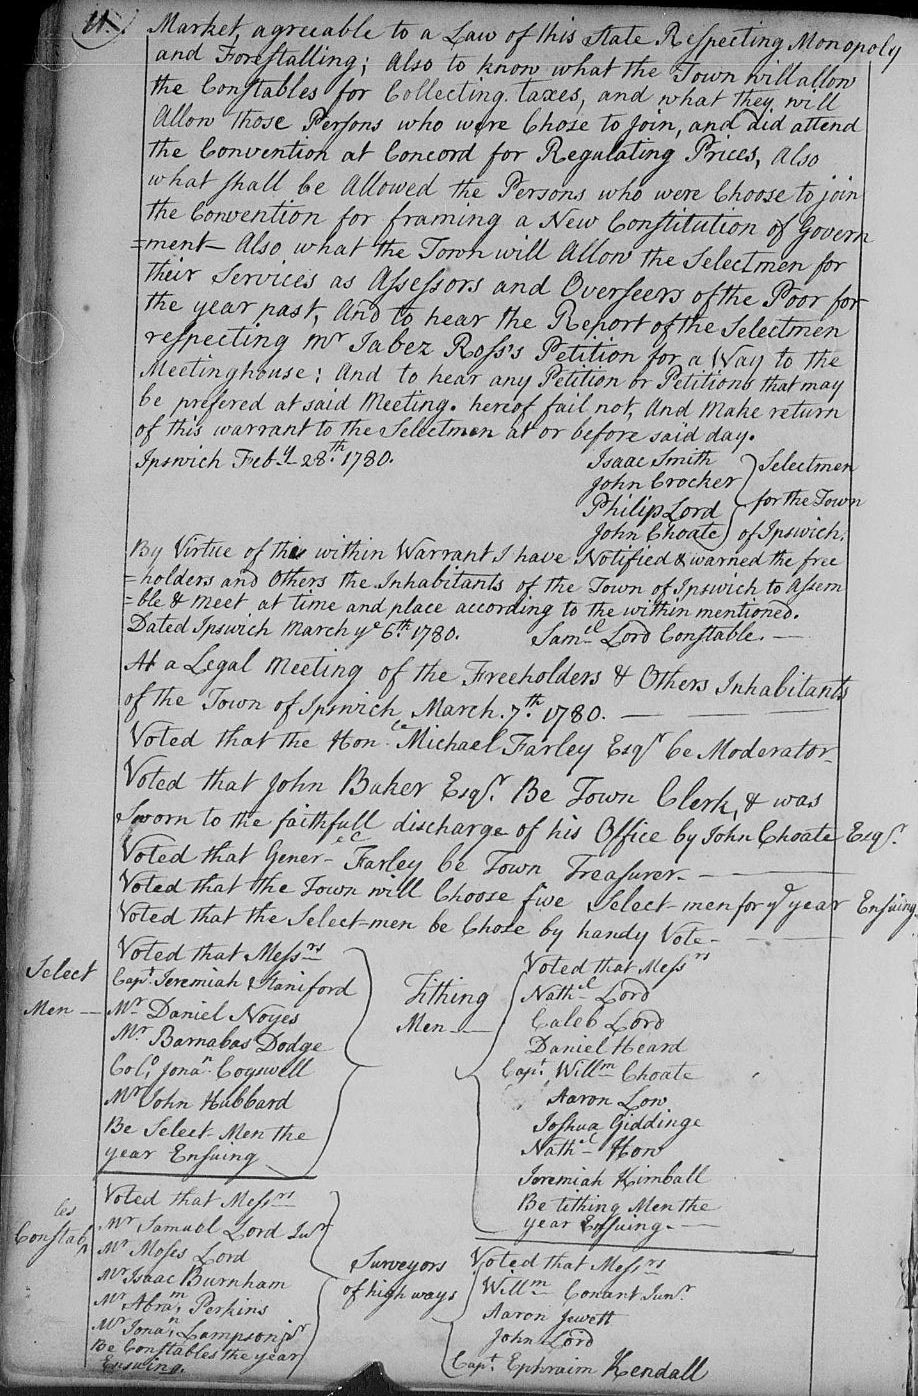 11.
Market, agreeable to a Law of this State Respecting Monopoly
and Forestalling; Also to know what the Town will allow
the Constables for Collecting taxes, and what they will
Allow those Persons who were Chose to join, and did attend
the Convention at Concord for Regulating Prices, Also
what shall be Allowed the Persons who were Choose to join
the Convention for framing a New Constitution of Govern
=ment— Also what the Town will Allow the Selectmen for
their Services as Assessors and Overseers of the Poor for
the year past, And to hear the Report of the Selectmen
respecting Mr Jabez Ross's Petition for a Way to the
Meetinghouse; And to hear any Petition or Petitions that may
be prefered at said Meeting. hereof fail not, And Make return
of this warrant to the Selectmen at or before said day.
Ipswich Feby 28th 1780.
Isaac Smith
John Crocker
Philip Lord
John Choate
Selectmen
for the Town
of Ipswich.
By Virtue of this within Warrant I have Notified & warned the free
=holders and Others the Inhabitants of the Town of Ipswich to Assem
=ble & Meet at time and place according to the within mentioned.
Dated Ipswich March ye 6th 1780. Samel Lord Constable.—
At a Legal Meeting of the Freeholders & Others Inhabitants
of the Town of Ipswich March. 7th 1780.—
Voted that the Honle Michael Farley Esqr be Moderator
Voted that John Baker Esqr. Be Town Clerk, & was
Sworn to the faithfull discharge of his Office by John Choate Esqr.
Voted that Generel Farley be Town Treasurer.—
Voted that the Town will Choose five Select-men for ye year Ensuing
Voted that the Select-men be Chose by handy Vote—
Select
Men—
Voted that Messrs
Capt Jeremiah Staniford
Mr Daniel Noyes
Mr Barnabas Dodge
Colo Jonan Cogswell
Mr John Hubbard
Be Select-Men the
year Ensuing
Tithing
Men—
Voted that Messrs
Nathel Lord
Caleb Lord
Daniel Heard
Capt Willm Choate
Aaron Low
Joshua Giddinge
Nathel How
Jeremiah Kimball
Be tithing Men the
year Ensuing.—
Constables
Voted that Messrs
Mr Samuel Lord Junr
Mr Moses Lord
Mr Isaac Burnham
Mr Abram Perkins
Mr Jonan Lampson jr
Be Constables the year
Ensuing.
Surveyors
of highways
Voted that Messrs
Willm Conant Junr
Aaron Jewett
John Lord
Capt Ephraim Kendall